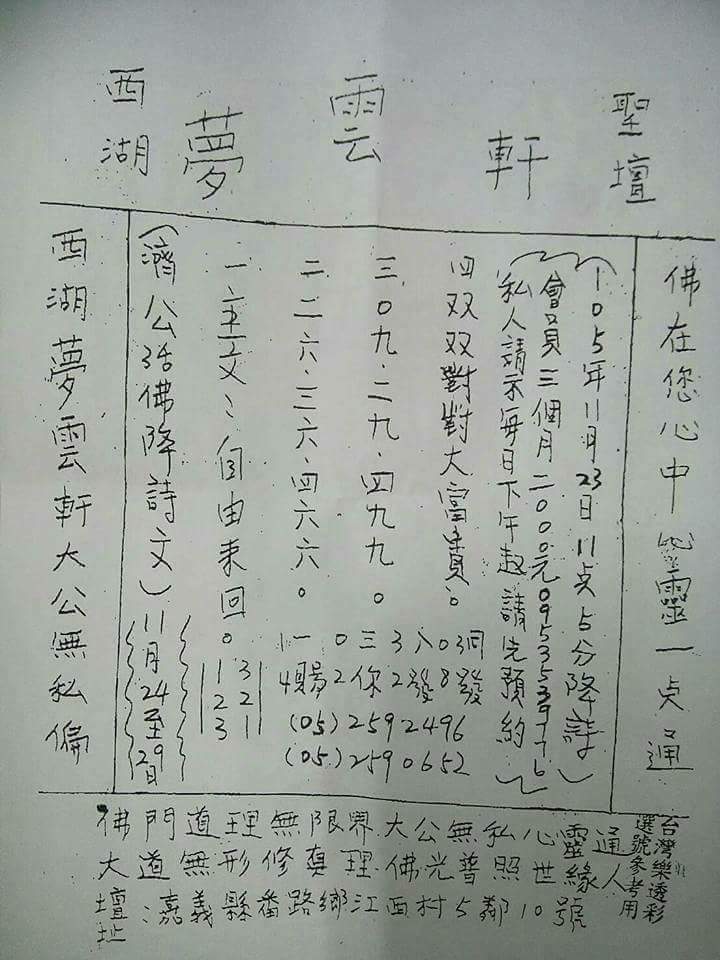 西湖夢雲軒聖壇
西湖夢雲軒大公無私偏
(濟公活佛降詩文)
11月24至29日
自由來回。
123
321
二二六·三六·四六六。
三0九·二九·四九九。
四双双對對大富貴。
一0三3入0洞
4賜2你2發8發
(05)2592496
(05)2590652
私人請示每日下午起請先預約
會員三個月二000元
105年11月23日11点5分降詩
佛在您心中心靈一点通
佛門道理無限界大公無私心靈通
大道無形修真理佛光普照世緣人
壇址嘉義縣番路鄉江西村5鄰10號
台灣樂透彩
選號參考用